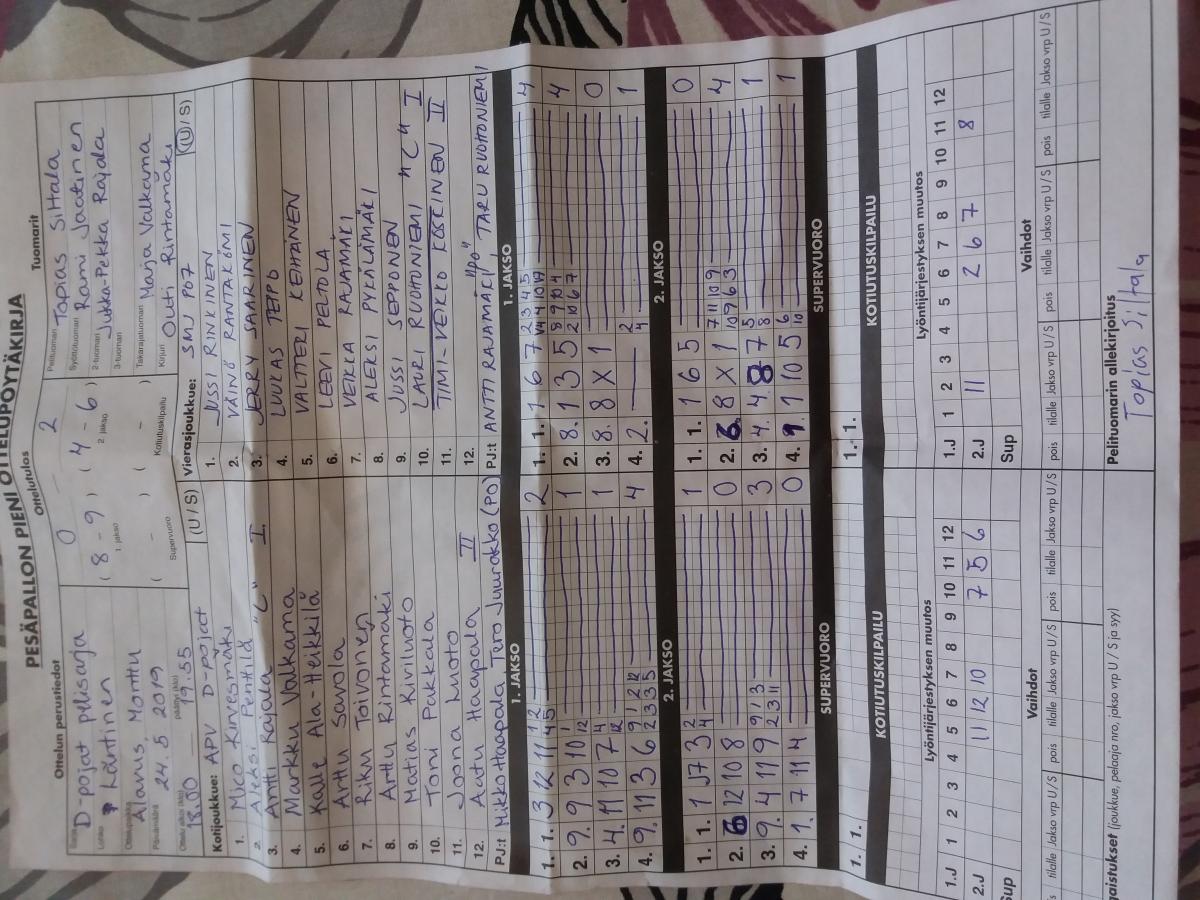 PESÄPALLON PIENI OTTELUPÖYTÄKIRJA
Ottelun perustiedot
Ottelutulos
Tuomarit
D-pojat pelisarja
Läntinen
Alavus, Monttu
Päivämäärä 24.5 2019
18.00 19.55
0 – 2
( 8 - 9 ) ( 4 - 6 )
1. jakso 2. jakso
( - ) ( - )
Supervuoro Kotiutuskilpailu
Pelituomari Topias Siltala
Syöttötuomari Rami Jaatinen
2-tuomari Jukka-Pekka Rajala
3-tuomari
Takarajatuomari Marja Valkama
Kirjuri Outi Rintamäki
Kotijoukkue: APV D-pojat (U / S)
1. Mico Kurvesmäki
2. Aleksi Penttilä "C" I
3. Antti Rajala
4. Markku Valkama
5. Kalle Ala-Heikkilä
6. Arttu Savola
7. Riku Toivonen
8. Arttu Rintamäki
9. Matias Kiviluoto
10. Toni Pakkala
11. Joona Luoto
12. Aatu Haapala II
PJ:t Mikko Haapala, Tero Juurakko (PO)
Vierasjoukkue: SMJ PO7 (U / S)
1. JUSSI RINKINEN
2. VÄINÖ RANTAKÖMI
3. JERRY SAARINEN
4. LUUKAS TEPPO
5. VALTTERI KEHÄNEN
6. LEEVI PELTOLA
7. VEIKKA RAJAMÄKI
8. ALEKSI PYKÄLÄMÄKI
9. JUSSI SEPPONEN
10. LAURI RUOHONIEMI "C" I
11. TIMI-VEIKKO KOSKINEN II
12.
PJ:t ANTTI RAJAMÄKI "PO", TARU RUOHONIEMI
1. JAKSO
1. 1. 3 12 11 2
2. 9. 9 3 10 1
3. 4. 11 10 7 1
4. 9. 11 3 6 4
1. JAKSO
1. 1. 1 6 7 4
2. 8. 1 3 5 4
3. 8. 8 X 1 0
4. 2. 1
2. JAKSO
1. 1. 1 17 3 1
2. 6. 12 10 8 0
3. 9. 4 11 9 3
4. 1. 7 11 4 0
2. JAKSO
1. 1. 1 6 5 0
2. 6. 8 X 1 4
3. 4. 4 8 7 1
4. 9. 1 10 5 1
SUPERVUORO
1. 1.
SUPERVUORO
1. 1.
KOTIUTUSKILPAILU
KOTIUTUSKILPAILU
Lyöntijärjestyksen muutos
1.J 1 2 3 4 5 6 7 8 9 10 11 12
2.J 11 12 10 7 5 6
Sup
Lyöntijärjestyksen muutos
1.J 1 2 3 4 5 6 7 8 9 10 11 12
2.J 11 2 6 7 8
Sup
Vaihdot
pois tilalle Jakso vrp U / S pois tilalle Jakso vrp U / S
Vaihdot
pois tilalle Jakso vrp U / S pois tilalle Jakso vrp U / S
gaistukset (joukkue, pelaaja nro, jakso vrp U / S ja syy)
Pelituomarin allekirjoitus
Topias Siltala